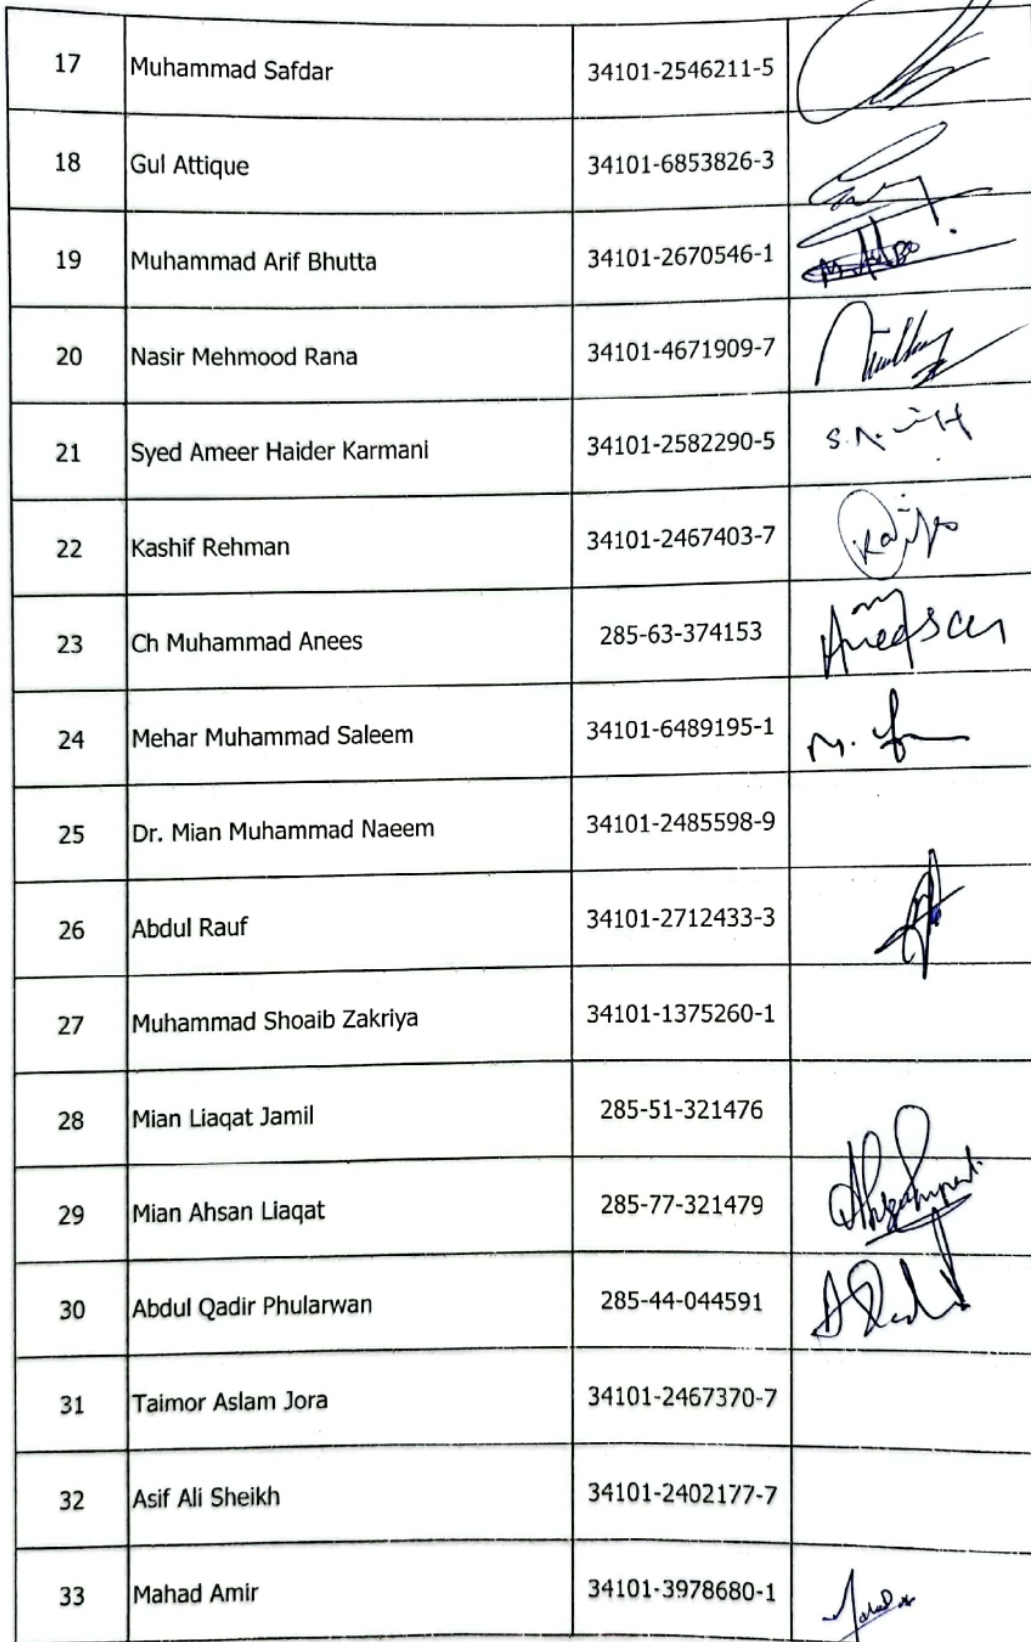 17 Muhammad Safdar 34101-2546211-5
18 Gul Attique 34101-6853826-3
19 Muhammad Arif Bhutta 34101-2670546-1
20 Nasir Mehmood Rana 34101-4671909-7
21 Syed Ameer Haider Karmani 34101-2582290-5
22 Kashif Rehman 34101-2467403-7
23 Ch Muhammad Anees 285-63-374153
24 Mehar Muhammad Saleem 34101-6489195-1
25 Dr. Mian Muhammad Naeem 34101-2485598-9
26 Abdul Rauf 34101-2712433-3
27 Muhammad Shoaib Zakriya 34101-1375260-1
28 Mian Liaqat Jamil 285-51-321476
29 Mian Ahsan Liaqat 285-77-321479
30 Abdul Qadir Phularwan 285-44-044591
31 Taimor Aslam Jora 34101-2467370-7
32 Asif Ali Sheikh 34101-2402177-7
33 Mahad Amir 34101-3978680-1